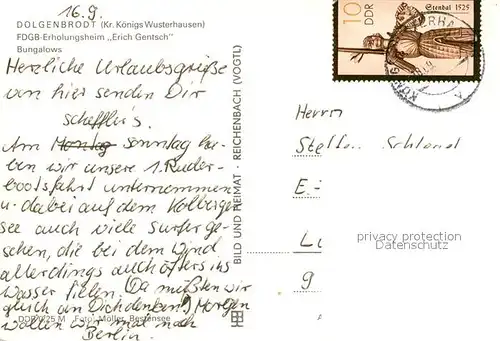 16.9.
DOLGENBRODT (Kr. Königs Wusterhausen)
FDGB-Erholungsheim „Erich Gentsch"
Bungalows
Herzliche Urlaubsgrüße
von hier senden Dir
Scheffler's.
Am Montag Sonntag ha-
ben wir unsere 1. Ruder-
bootsfahrt unternommen
u. dabei auf dem Kolberger
See auch viele Surfer ge-
sehen, die bei dem Wind
allerdings auch öfters ins
Wasser fielen. (Da mußten wir
gleich an Dich denken!) Morgen
wollen wir mal nach
Berlin.
Foto: Möller, Bestensee
BILD UND HEIMAT · REICHENBACH (VOGTL)
10
DDR
Stendal 1525
Herrn
Steffen
E.-
9
privacy protection
Datenschutz